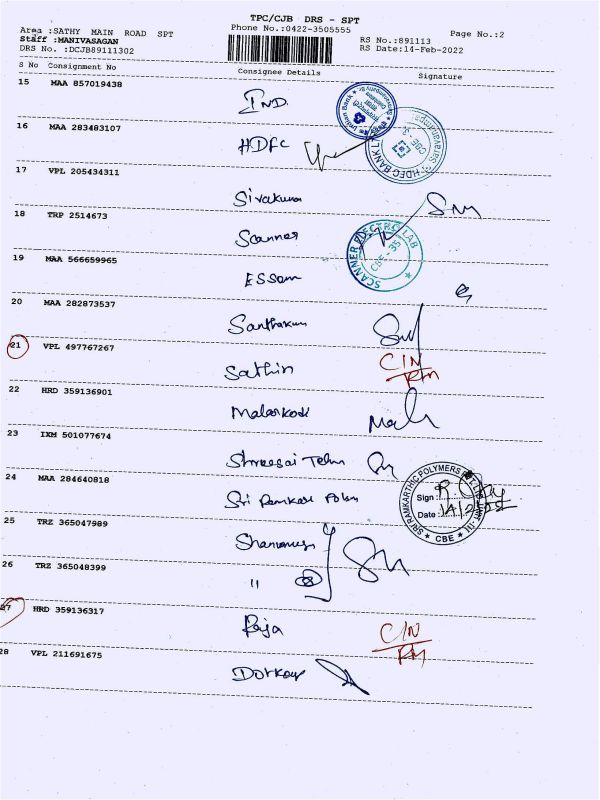 TPC/CJB DRS - SPT
Area :SATHY MAIN ROAD SPT
Phone No.:0422-3505555
Page No.:2
Staff :MANIVASAGAN
RS No.:891113
DRS No. :DCJB89111302
RS Date:14-Feb-2022
S No Consignment No Consignee Details Signature
15 MAA 857019438 IND.
Indian Bank
16 MAA 283483107 HDFC
HDFC BANK LTD
CBE
17 VPL 205434311 Sivakum
18 TRP 2514673 Scanner
SCANNER ELECTRO LAB
CBE - 35
19 MAA 566659965 ESSam
20 MAA 282873537 Santhakum
21 VPL 497767267 Sathin C/N
22 HRD 359136901 Malarkodi
23 IXM 501077674 Shreesai
24 MAA 284640818 Sri Ramkar Polym
SRI RAMKARTHIC POLYMERS
Sign :
Date : 14/2
CBE
25 TRZ 365047989
26 TRZ 365048399 "
27 HRD 359136317 Raja C/N
28 VPL 211691675